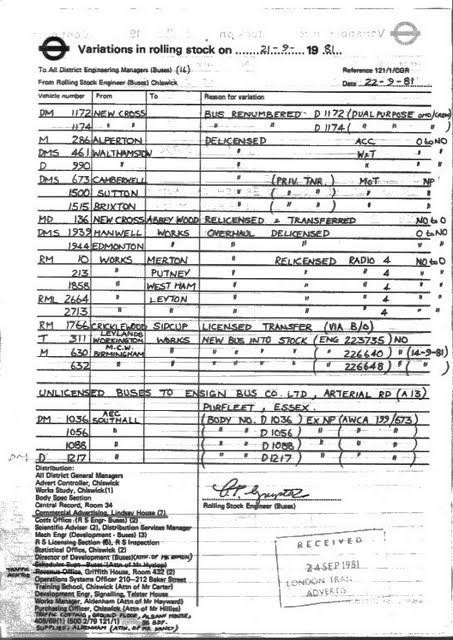 Variations in rolling stock on 21-9- 19 81
To All District Engineering Managers (Buses) (16)
Reference 121/1/OBR
From Rolling Stock Engineer (Buses) Chiswick
Date 22-9-81
Vehicle number From To Reason for variation
DM 1172 NEW CROSS BUS RENUMBERED D 1172 (DUAL PURPOSE OMO/CREW)
1174 " " " D 1174 ( " " " )
M 286 ALPERTON DELICENSED ACC O to NO
DMS 461 WALTHAMSTOW " W&T "
D 990 " " " "
DMS 673 CAMBERWELL " (PRIV. TNR.) MOT NP
1500 SUTTON " ( " " ) " "
1515 BRIXTON " ( " " ) " "
MD 136 NEW CROSS ABBEY WOOD RELICENSED & TRANSFERRED NO to O
DMS 1939 HANWELL WORKS OVERHAUL DELICENSED O to NO
1944 EDMONTON " " " "
RM 10 WORKS MERTON " RELICENSED RADIO 4 NO to O
213 " PUTNEY " " " 4 "
1858 " WEST HAM " " " 4 "
RML 2664 " LEYTON " " " 4 "
2713 " " " " " 4 "
RM 1766 CRICKLEWOOD SIDCUP LICENSED TRANSFER (VIA B/O)
T 311 LEYLANDS WORKINGTON WORKS NEW BUS INTO STOCK (ENG 223735) NO
M 630 M.C.W. BIRMINGHAM " " " " " ( " 226640) " (14-9-81)
632 " " " " " " ( " 226648) " ( " )
UNLICENSED BUSES TO ENSIGN BUS CO. LTD, ARTERIAL RD (A13)
PURFLEET, ESSEX.
DM 1036 AEC SOUTHALL (BODY NO. D1036) EX NP (AWCA 199/673)
1056 " ( " " D1056) " " ( " )
1088 " ( " " D1088) " " ( " )
D 1217 " ( " " D1217) " " ( " )
Distribution:
All District General Managers
Advert Controller, Chiswick
Works Study, Chiswick(1)
Body Spec Section
Central Record, Room 34
Commercial Advertising, Lindsay House (2)
Costs Office (R S Engr- Buses) (2)
Scientific Adviser (2), Distribution Services Manager
Mech Engr (Development - Buses) (3)
R S Licensing Section (6), R S Inspection
Statistical Office, Chiswick (2)
Director of Development (Buses)
Griffith House, Room 432 (2)
Operations Systems Officer 210-212 Baker Street
Training School, Chiswick (Attn of Mr Carter)
Development Engr, Signalling, Telstar House
Works Manager, Aldenham (Attn of Mr Hayward)
Purchasing Officer, Chiswick (Attn of Mr Hillies)
TRAFFIC COSTING, GROUND FLOOR, ALBANY HOUSE,
405/69(1) (500 2/79 121/1) 55 BDY.
SUPPLIES ALDENHAM
Rolling Stock Engineer (Buses)
RECEIVED
24 SEP 1981
LONDON TRAN
ADVERTIS